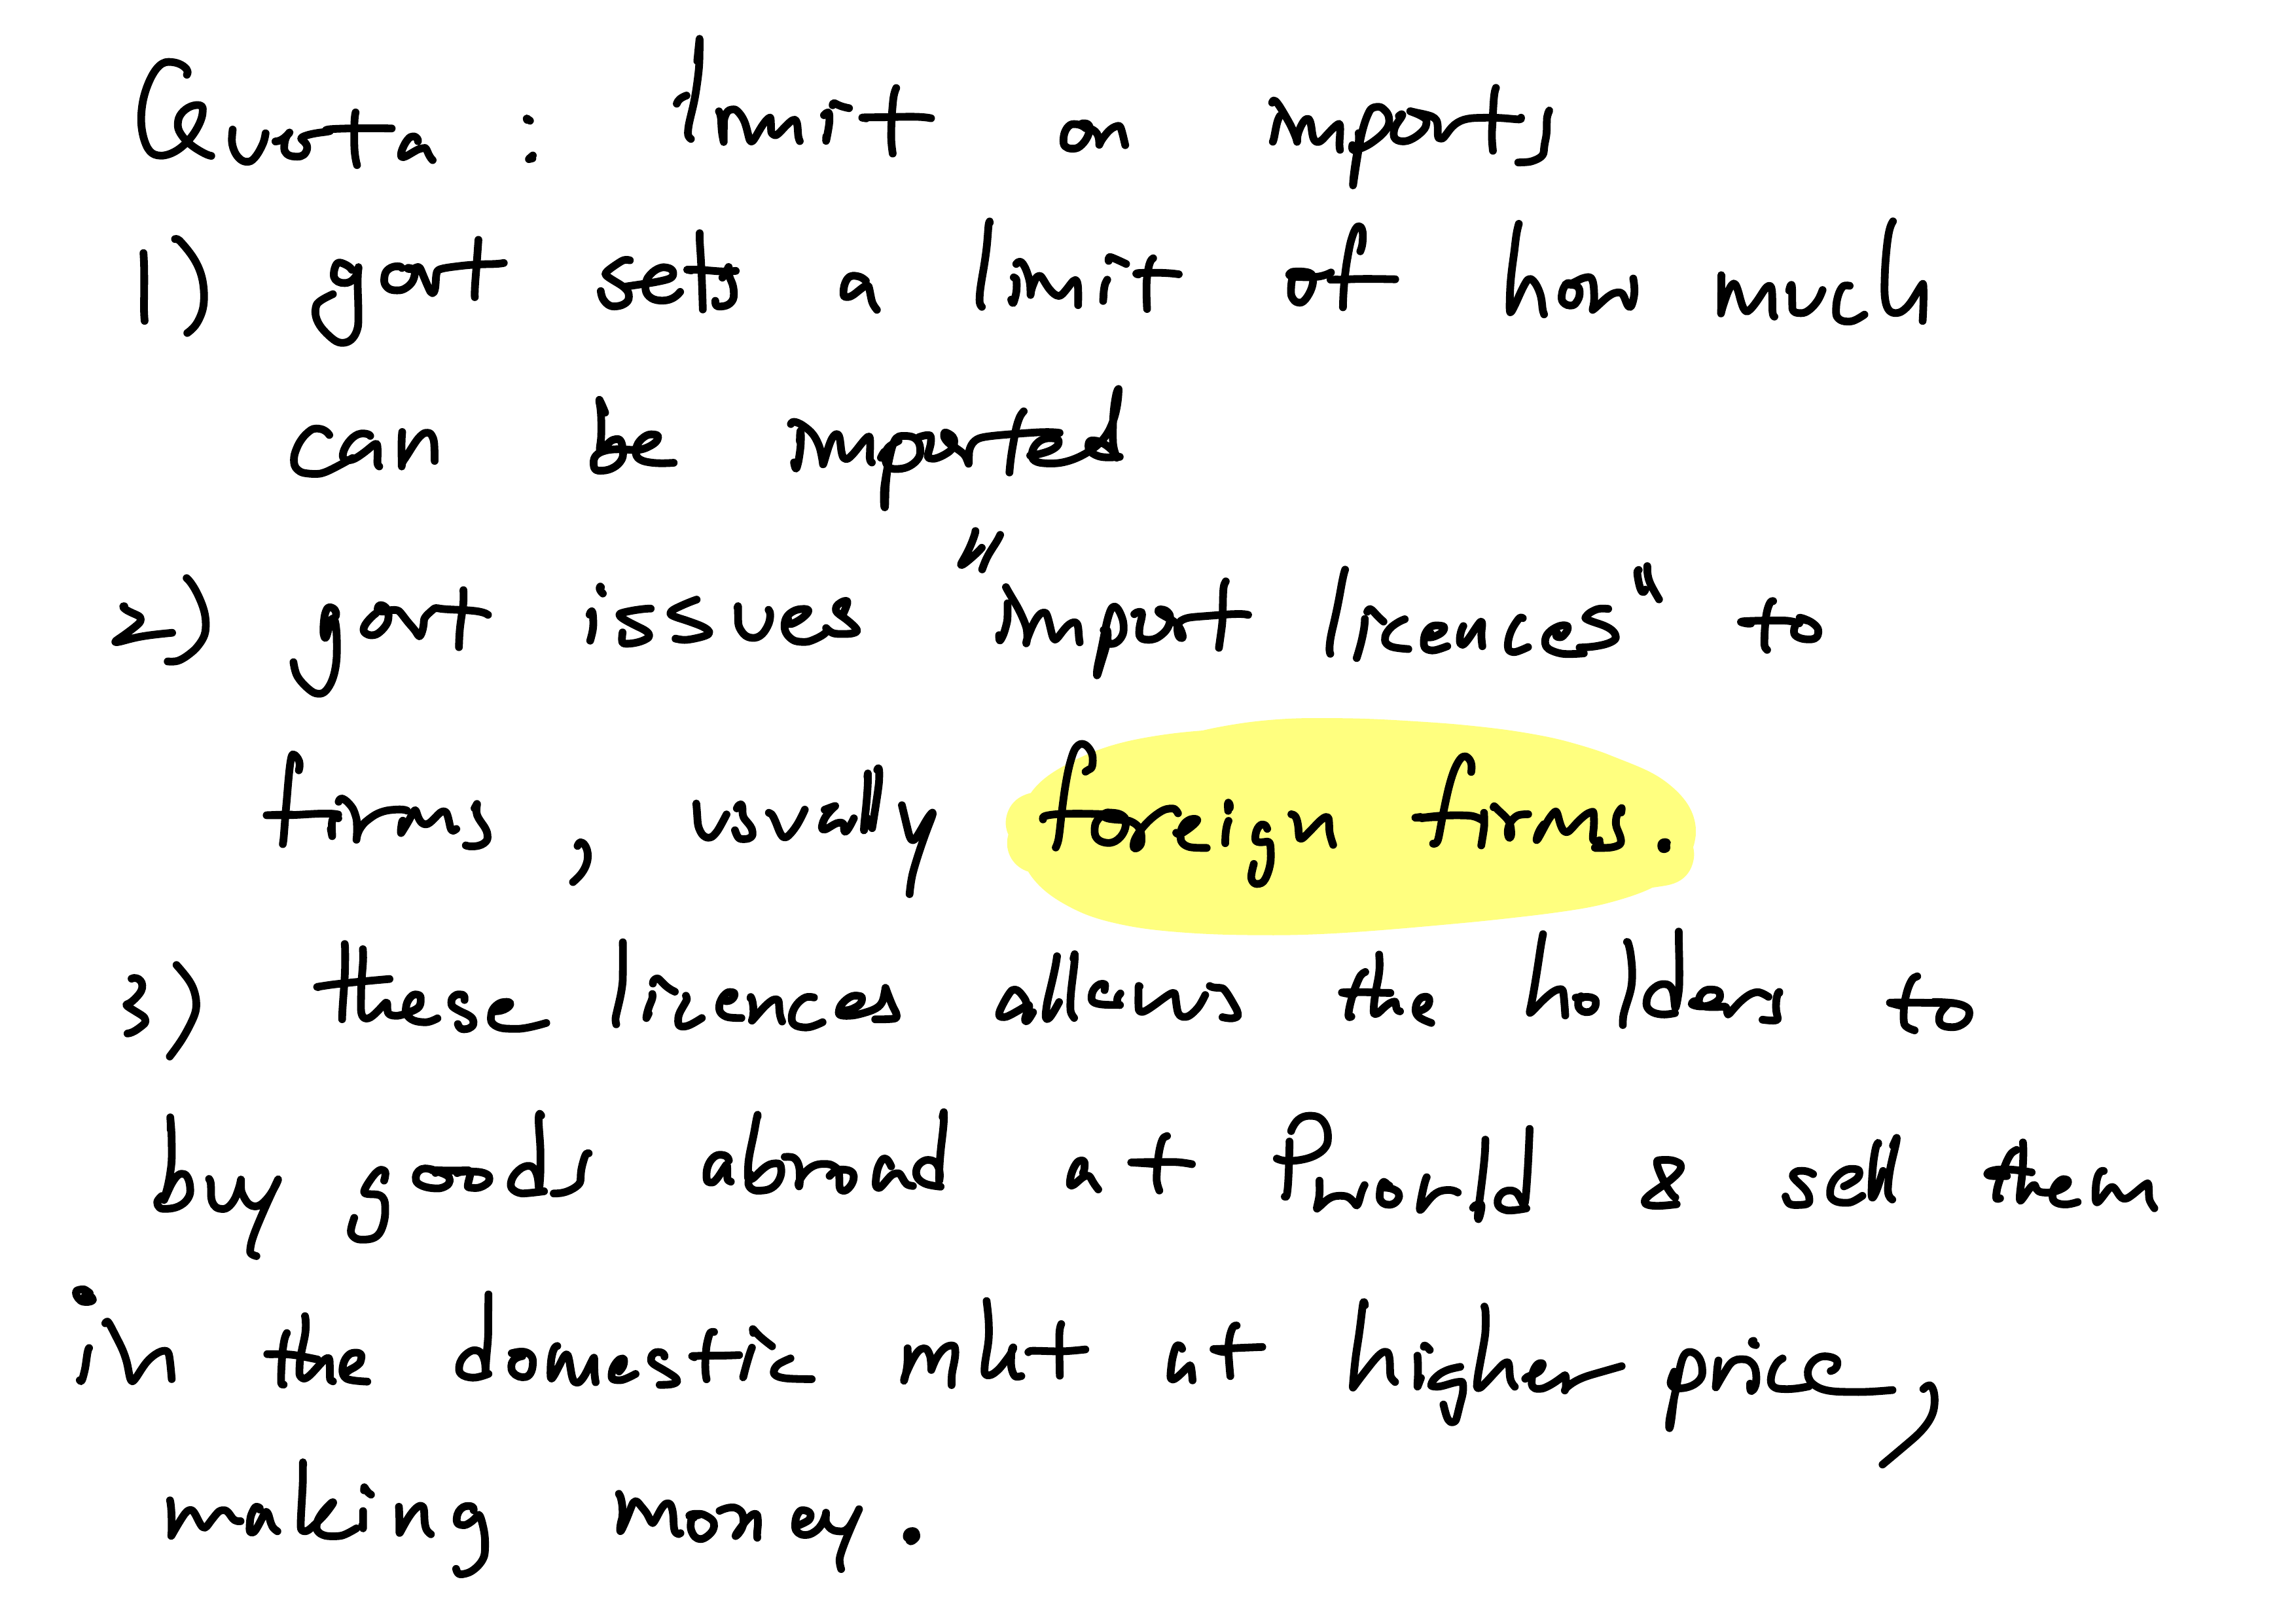 Quota : limit on imports
1) govt sets a limit of how much
can be imported
2) govt issues "import licences" to
firms, usually foreign firms.
3) these licences allows the holders to
buy goods abroad at Pworld & sell them
in the domestic mkt at higher price,
making money.